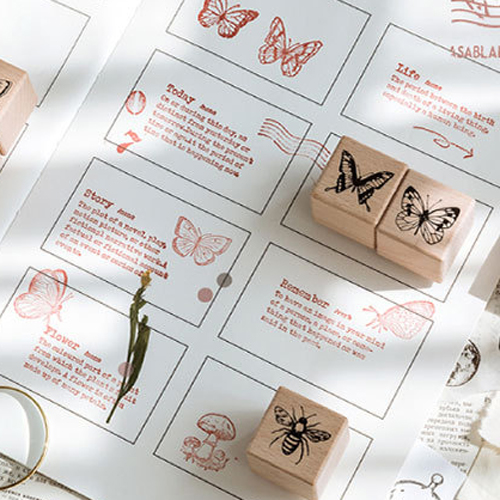 ASABLA
Life noun
The period between the birth
and death of a living thing,
especially a human being.
Today noun
On or during this day, as
distinct from yesterday or
tomorrow. During the present
time or age; the period of
time that is happening now
7
Story noun
The plot of a novel, play,
motion picture, or other
fictional narrative work.
factual or fictional account
of an event or series of
events.
Remember verb
To have an image in your mind
of a person, a place, or some-
thing that happened or was
said in the past.
Flower noun
The coloured part of a
from which the plant's fruit
develops. A flower
made up of many petals.